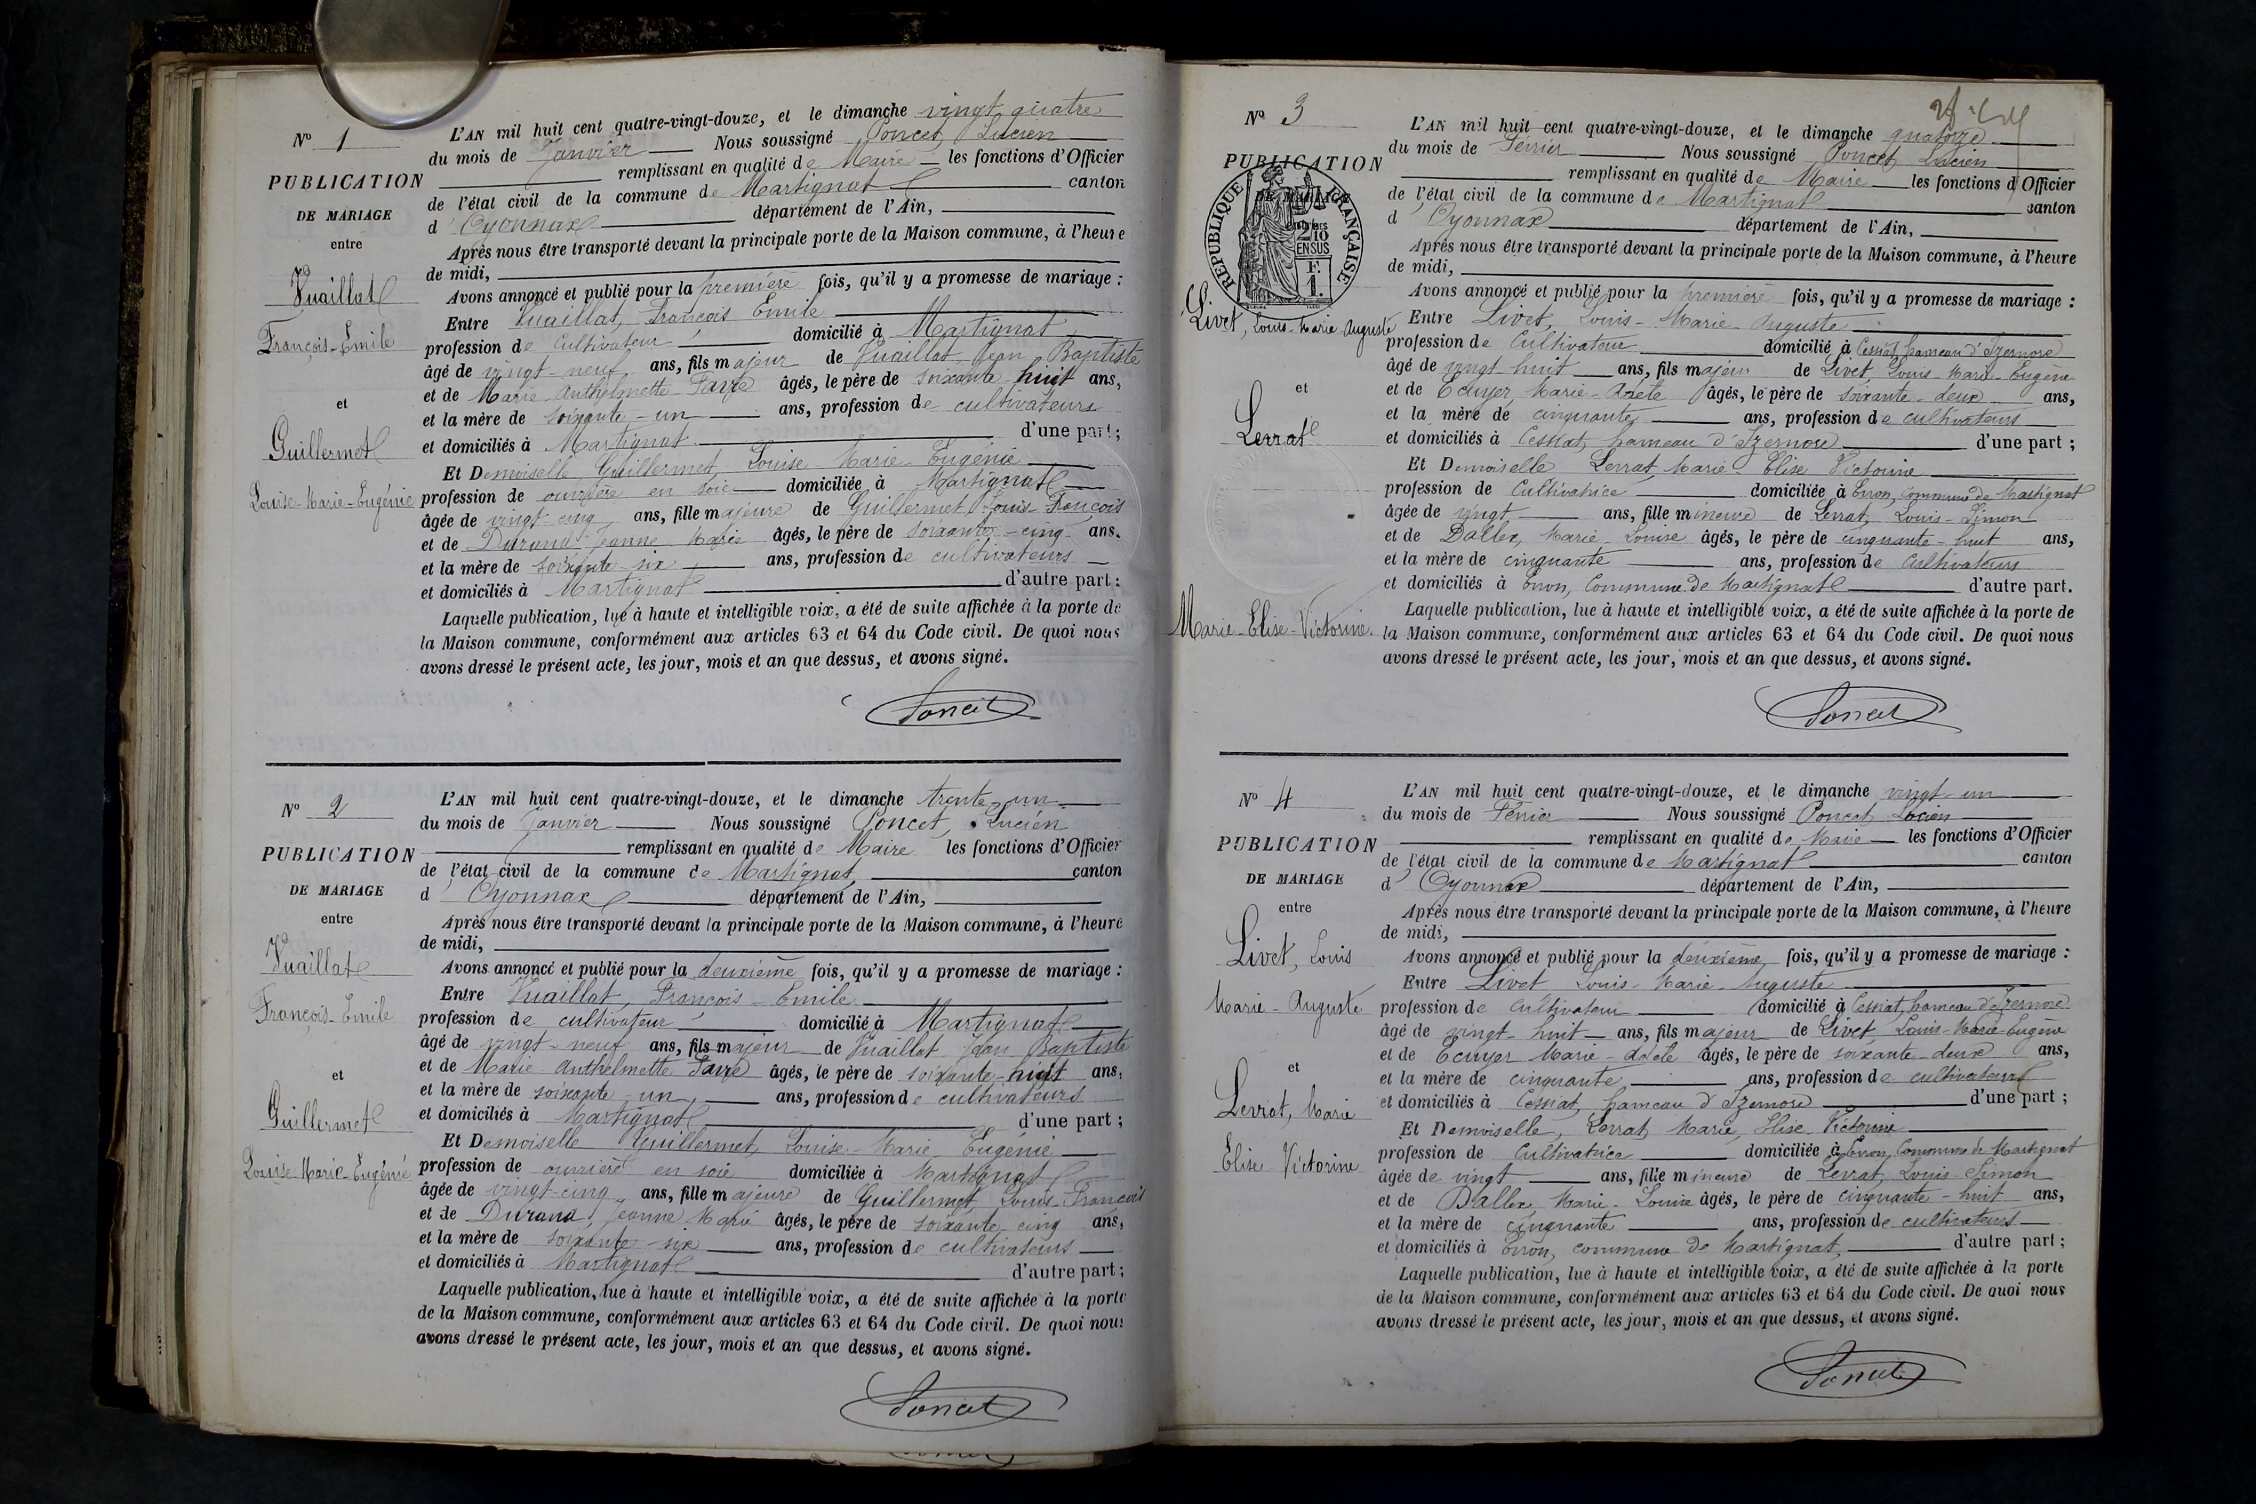 Nº 1
PUBLICATION
DE MARIAGE
entre
Vuaillat
François-Emile
et
Guillermet
Louise-Marie-Eugénie
L'AN mil huit cent quatre-vingt-douze, et le dimanche vingt quatre
du mois de Janvier Nous soussigné Poncet, Lucien
remplissant en qualité de Maire les fonctions d'Officier
de l'état civil de la commune de Martignat canton
d'Oyonnax département de l'Ain,
Après nous être transporté devant la principale porte de la Maison commune, à l'heure
de midi,
Avons annoncé et publié pour la première fois, qu'il y a promesse de mariage :
Entre Vuaillat, François Emile
profession de Cultivateur domicilié à Martignat
âgé de vingt-neuf ans, fils majeur de Vuaillat Jean Baptiste
et de Marie Anthelmette Favre âgés, le père de soixante huit ans,
et la mère de soixante-un ans, profession de cultivateurs
et domiciliés à Martignat d'une part ;
Et Demoiselle Guillermet, Louise-Marie-Eugénie
profession de ouvrière en soie domiciliée à Martignat
âgée de vingt cinq ans, fille majeure de Guillermet Louis-François
et de Durand Jeanne Marie âgés, le père de soixante-cinq ans.
et la mère de soixante-six ans, profession de cultivateurs
et domiciliés à Martignat d'autre part ;
Laquelle publication, lue à haute et intelligible voix, a été de suite affichée à la porte de
la Maison commune, conformément aux articles 63 et 64 du Code civil. De quoi nous
avons dressé le présent acte, les jour, mois et an que dessus, et avons signé.
Poncet
Nº 2
PUBLICATION
DE MARIAGE
entre
Vuaillat
François-Emile
et
Guillermet
Louise-Marie-Eugénie
L'AN mil huit cent quatre-vingt-douze, et le dimanche trente-un
du mois de Janvier Nous soussigné Poncet, Lucien
remplissant en qualité de Maire les fonctions d'Officier
de l'état civil de la commune de Martignat, canton
d'Oyonnax département de l'Ain,
Après nous être transporté devant la principale porte de la Maison commune, à l'heure
de midi,
Avons annoncé et publié pour la deuxième fois, qu'il y a promesse de mariage :
Entre Vuaillat, François-Emile
profession de cultivateur domicilié à Martignat
âgé de vingt-neuf ans, fils majeur de Vuaillat Jean Baptiste
et de Marie Anthelmette Favre âgés, le père de soixante-huit ans,
et la mère de soixante un ans, profession de cultivateurs
et domiciliés à Martignat d'une part ;
Et Demoiselle Guillermet, Louise-Marie-Eugénie
profession de ouvrière en soie domiciliée à Martignat
âgée de vingt-cinq ans, fille majeure de Guillermet, Louis-François
et de Durand, Jeanne Marie âgés, le père de soixante-cinq ans,
et la mère de soixante-six ans, profession de cultivateurs
et domiciliés à Martignat d'autre part ;
Laquelle publication, lue à haute et intelligible voix, a été de suite affichée à la porte
de la Maison commune, conformément aux articles 63 et 64 du Code civil. De quoi nous
avons dressé le présent acte, les jour, mois et an que dessus, et avons signé.
Poncet
Nº 3
PUBLICATION
DE MARIAGE
REPUBLIQUE FRANÇAISE
2/10
EN SUS
F.
1.
Livet, Louis-Marie-Auguste
et
Lerrat
Marie-Elise-Victorine
L'AN mil huit cent quatre-vingt-douze, et le dimanche quatorze
du mois de Février Nous soussigné Poncet, Lucien
remplissant en qualité de Maire les fonctions d'Officier
de l'état civil de la commune de Martignat canton
d'Oyonnax département de l'Ain,
Après nous être transporté devant la principale porte de la Maison commune, à l'heure
de midi,
Avons annoncé et publié pour la première fois, qu'il y a promesse de mariage :
Entre Livet, Louis-Marie-Auguste
profession de Cultivateur domicilié à Cessiat, hameau d'Izernore
âgé de vingt huit ans, fils majeur de Livet, Louis-Marie-Eugène
et de Ecuyer, Marie-Adèle âgés, le père de soixante-deux ans,
et la mère de cinquante ans, profession de cultivateurs
et domiciliés à Cessiat, hameau d'Izernore d'une part ;
Et Demoiselle Lerrat, Marie-Elise Victorine
profession de Cultivatrice domiciliée à Evron, Commune de Martignat
âgée de vingt ans, fille mineure de Lerrat, Louis-Simon
et de Ballex, Marie-Louise âgés, le père de cinquante-huit ans,
et la mère de cinquante ans, profession de Cultivateurs
et domiciliés à Evron, Commune de Martignat d'autre part.
Laquelle publication, lue à haute et intelligible voix, a été de suite affichée à la porte de
la Maison commune, conformément aux articles 63 et 64 du Code civil. De quoi nous
avons dressé le présent acte, les jour, mois et an que dessus, et avons signé.
Poncet
Nº 4
PUBLICATION
DE MARIAGE
entre
Livet, Louis
Marie-Auguste
et
Lerrat, Marie
Elise-Victorine
L'AN mil huit cent quatre-vingt-douze, et le dimanche vingt-un
du mois de Février Nous soussigné Poncet, Lucien
remplissant en qualité de Maire les fonctions d'Officier
de l'état civil de la commune de Martignat canton
d'Oyonnax département de l'Ain,
Après nous être transporté devant la principale porte de la Maison commune, à l'heure
de midi,
Avons annoncé et publié pour la deuxième fois, qu'il y a promesse de mariage :
Entre Livet Louis-Marie-Auguste
profession de Cultivateur domicilié à Cessiat, hameau d'Izernore
âgé de vingt-huit ans, fils majeur de Livet, Louis-Marie-Eugène
et de Ecuyer Marie-Adèle âgés, le père de soixante-deux ans,
et la mère de cinquante ans, profession de cultivateurs
et domiciliés à Cessiat, hameau d'Izernore d'une part ;
Et Demoiselle, Lerrat, Marie, Elise-Victorine
profession de Cultivatrice domiciliée à Evron, Commune de Martignat
âgée de vingt ans, fille mineure de Lerrat, Louis-Simon
et de Ballex, Marie-Louise âgés, le père de cinquante-huit ans,
et la mère de cinquante ans, profession de cultivateurs
et domiciliés à Evron, commune de Martignat, d'autre part ;
Laquelle publication, lue à haute et intelligible voix, a été de suite affichée à la porte
de la Maison commune, conformément aux articles 63 et 64 du Code civil. De quoi nous
avons dressé le présent acte, les jour, mois et an que dessus, et avons signé.
Poncet